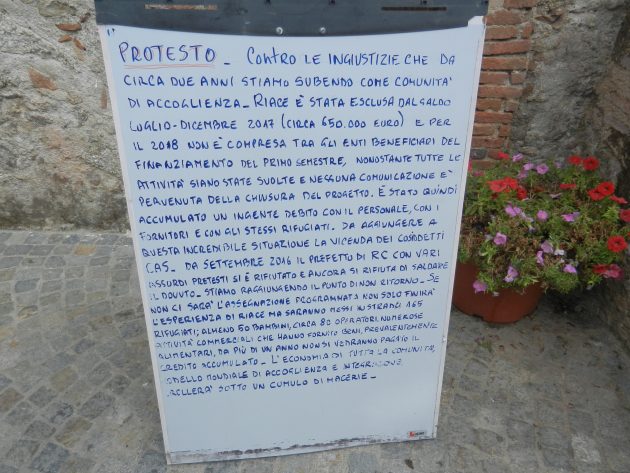 PROTESTO - CONTRO LE INGIUSTIZIE CHE DA
CIRCA DUE ANNI STIAMO SUBENDO COME COMUNITA'
DI ACCOGLIENZA - RIACE È STATA ESCLUSA DAL SALDO
LUGLIO-DICEMBRE 2017 (CIRCA 650.000 EURO) E PER
IL 2018 NON È COMPRESA TRA GLI ENTI BENEFICIARI DEL
FINANZIAMENTO DEL PRIMO SEMESTRE, NONOSTANTE TUTTE LE
ATTIVITÀ SIANO STATE SVOLTE E NESSUNA COMUNICAZIONE È
PERVENUTA DELLA CHIUSURA DEL PROGETTO. È STATO QUINDI
ACCUMULATO UN INGENTE DEBITO CON IL PERSONALE, CON I
FORNITORI E CON GLI STESSI RIFUGIATI. DA AGGIUNGERE A
QUESTA INCREDIBILE SITUAZIONE LA VICENDA DEI COSIDDETTI
CAS. DA SETTEMBRE 2016 IL PREFETTO DI RC CON VARI
ASSURDI PRETESTI SI È RIFIUTATO E ANCORA SI RIFIUTA DI SALDARE
IL DOVUTO. STIAMO RAGGIUNGENDO IL PUNTO DI NON RITORNO - SE
NON CI SARÀ L'ASSEGNAZIONE PROGRAMMATA NON SOLO FINIRÀ
L'ESPERIENZA DI RIACE MA SARANNO MESSI IN STRADA 165
RIFUGIATI, ALMENO 50 BAMBINI, CIRCA 80 OPERATORI, NUMEROSE
ATTIVITÀ COMMERCIALI CHE HANNO FORNITO BENI, PREVALENTEMENTE
ALIMENTARI, DA PIÙ DI UN ANNO NON SI VEDRANNO PAGATO IL
CREDITO ACCUMULATO - L'ECONOMIA DI TUTTA LA COMUNITÀ,
MODELLO MONDIALE DI ACCOGLIENZA E INTEGRAZIONE
CROLLERÀ SOTTO UN CUMULO DI MACERIE -